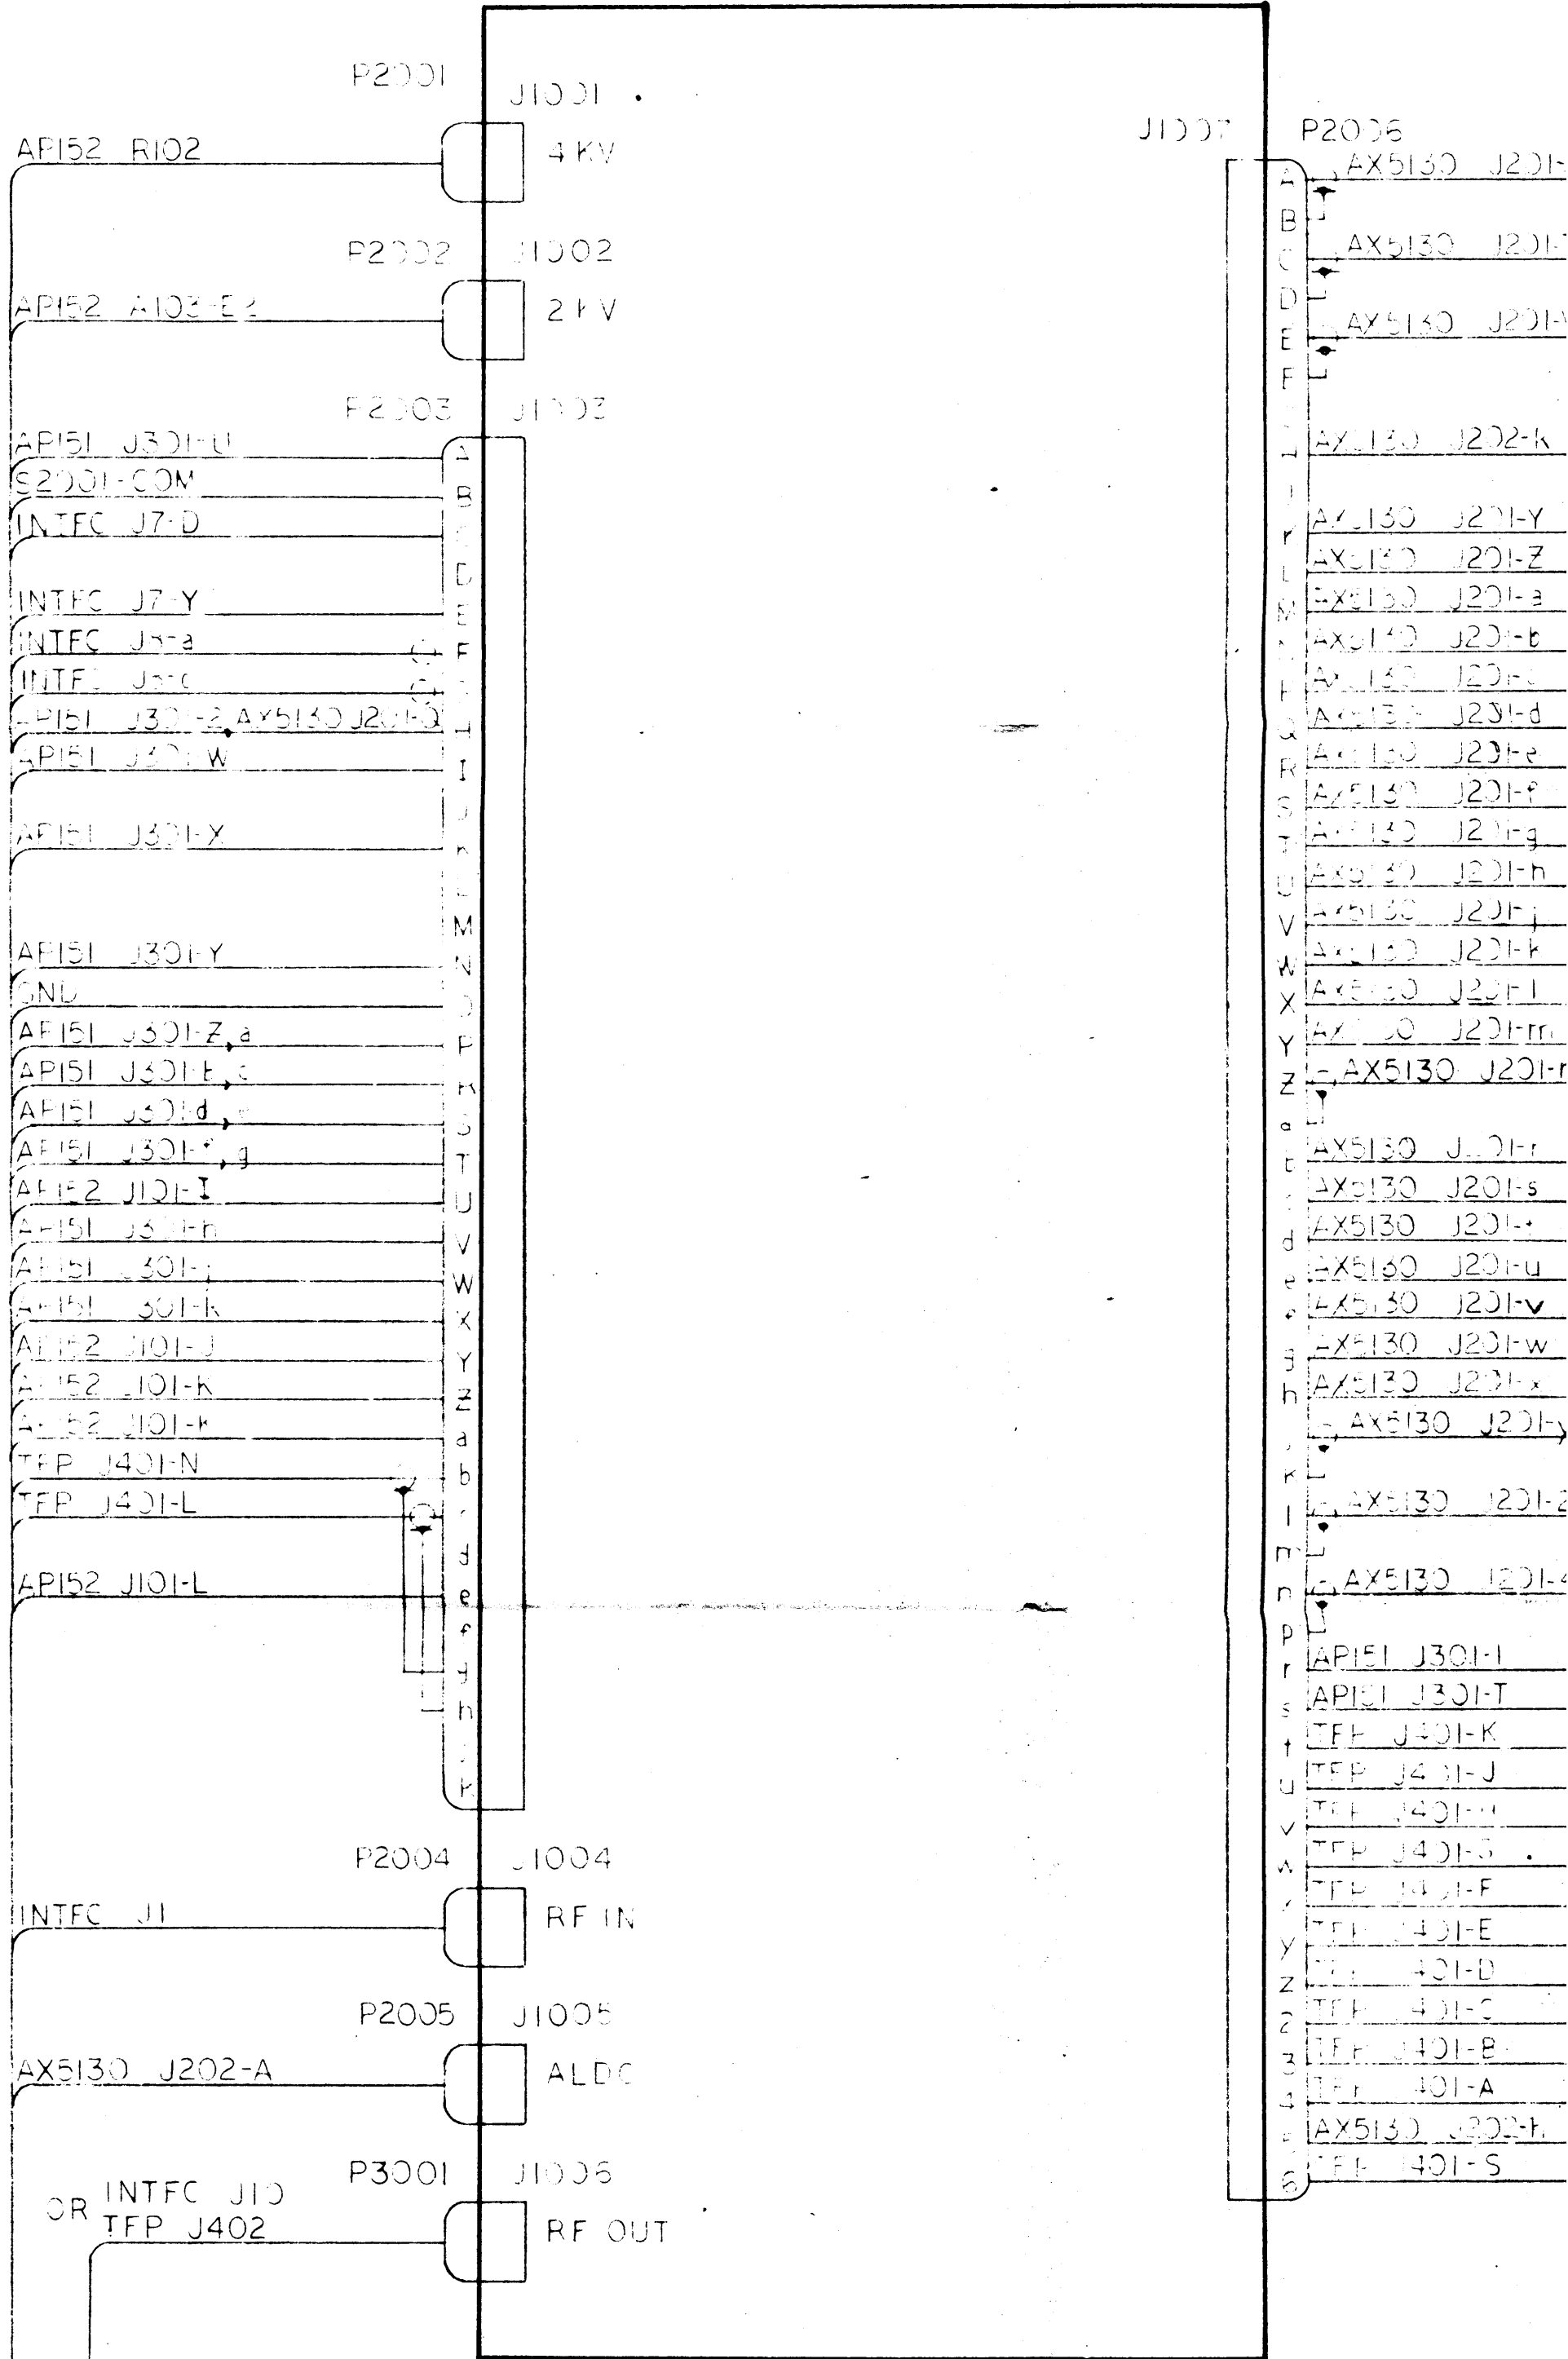 P2001
J1001
AP152 R102
4 KV
P2002
J1002
AP152 A103-E2
2 KV
P2003
J1003
AP151 J301-U
A
S2001-COM
B
INTFC J7-D
D
INTFC J7-Y
E
INTFC
F
INTFC
AP151 J301-2, AX5130 J201-Q
H
AP151 J301-W
I
J
AP151 J301-X
K
L
M
AP151 J301-Y
N
GND
O
AP151 J301-Z,a
P
AP151 J301-b,c
R
AP151 J301-d,e
S
AP151 J301-f,g
T
AP152 J101-I
U
AP151 J301-h
V
AP151 J301-j
W
AP151 J301-k
X
AP152 J101-J
Y
AP152 J101-K
Z
AP152
a
TFP J401-N
b
TFP J401-L
d
AP152 J101-L
e
f
g
h
k
P2004
J1004
INTFC J1
RF IN
P2005
J1005
AX5130 J202-A
ALDC
P3001
J1006
OR INTFC J10
TFP J402
RF OUT
J1007
P2006
A
AX5130 J201-
B
C
AX5130 J201-
D
E
AX5130 J201-
F
H
AX5130 J202-k
K
AX5130 J201-Y
L
AX5130 J201-Z
M
AX5130 J201-a
N
AX5130 J201-b
P
AX5130 J201-c
Q
AX5130 J201-d
R
AX5130 J201-e
S
AX5130 J201-f
T
AX5130 J201-g
U
AX5130 J201-h
V
AX5130 J201-j
W
AX5130 J201-k
X
AX5130 J201-l
Y
AX5130 J201-m
Z
AX5130 J201-
a
b
AX5130 J201-r
c
AX5130 J201-s
d
AX5130 J201-t
e
AX5130 J201-u
f
AX5130 J201-v
g
AX5130 J201-w
h
AX5130 J201-x
j
AX5130 J201-y
k
l
AX5130 J201-2
m
n
AX5130 J201-4
p
r
AP151 J301-I
s
AP151 J301-T
t
TFP J401-K
u
TFP J401-J
v
TFP J401-H
w
TFP J401-G
x
TFP J401-F
y
TFP J401-E
z
TFP J401-D
2
TFP J401-C
3
TFP J401-B
4
TFP J401-A
5
AX5130 J202-h
6
TFP J401-S